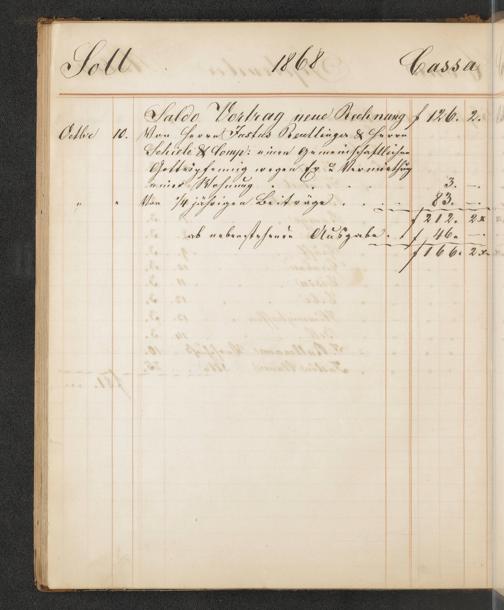 Soll 1868 Cassa
Saldo Vortrag neue Rechnung f 126. 2.
Octbr 10. Von Herrn Justus Reutlinger & Herrn
Schiele & Comp: einen Gemeinschaftlichen
Gottespfennig wegen Er u Vermiethung
einer Wohnung . . . . 3. —
" " Von 1/4 jährigen Beiträge . . . 83. —
f 212. 2x
ab nebenstehende Ausgabe . f 46. —
f 166. 2x